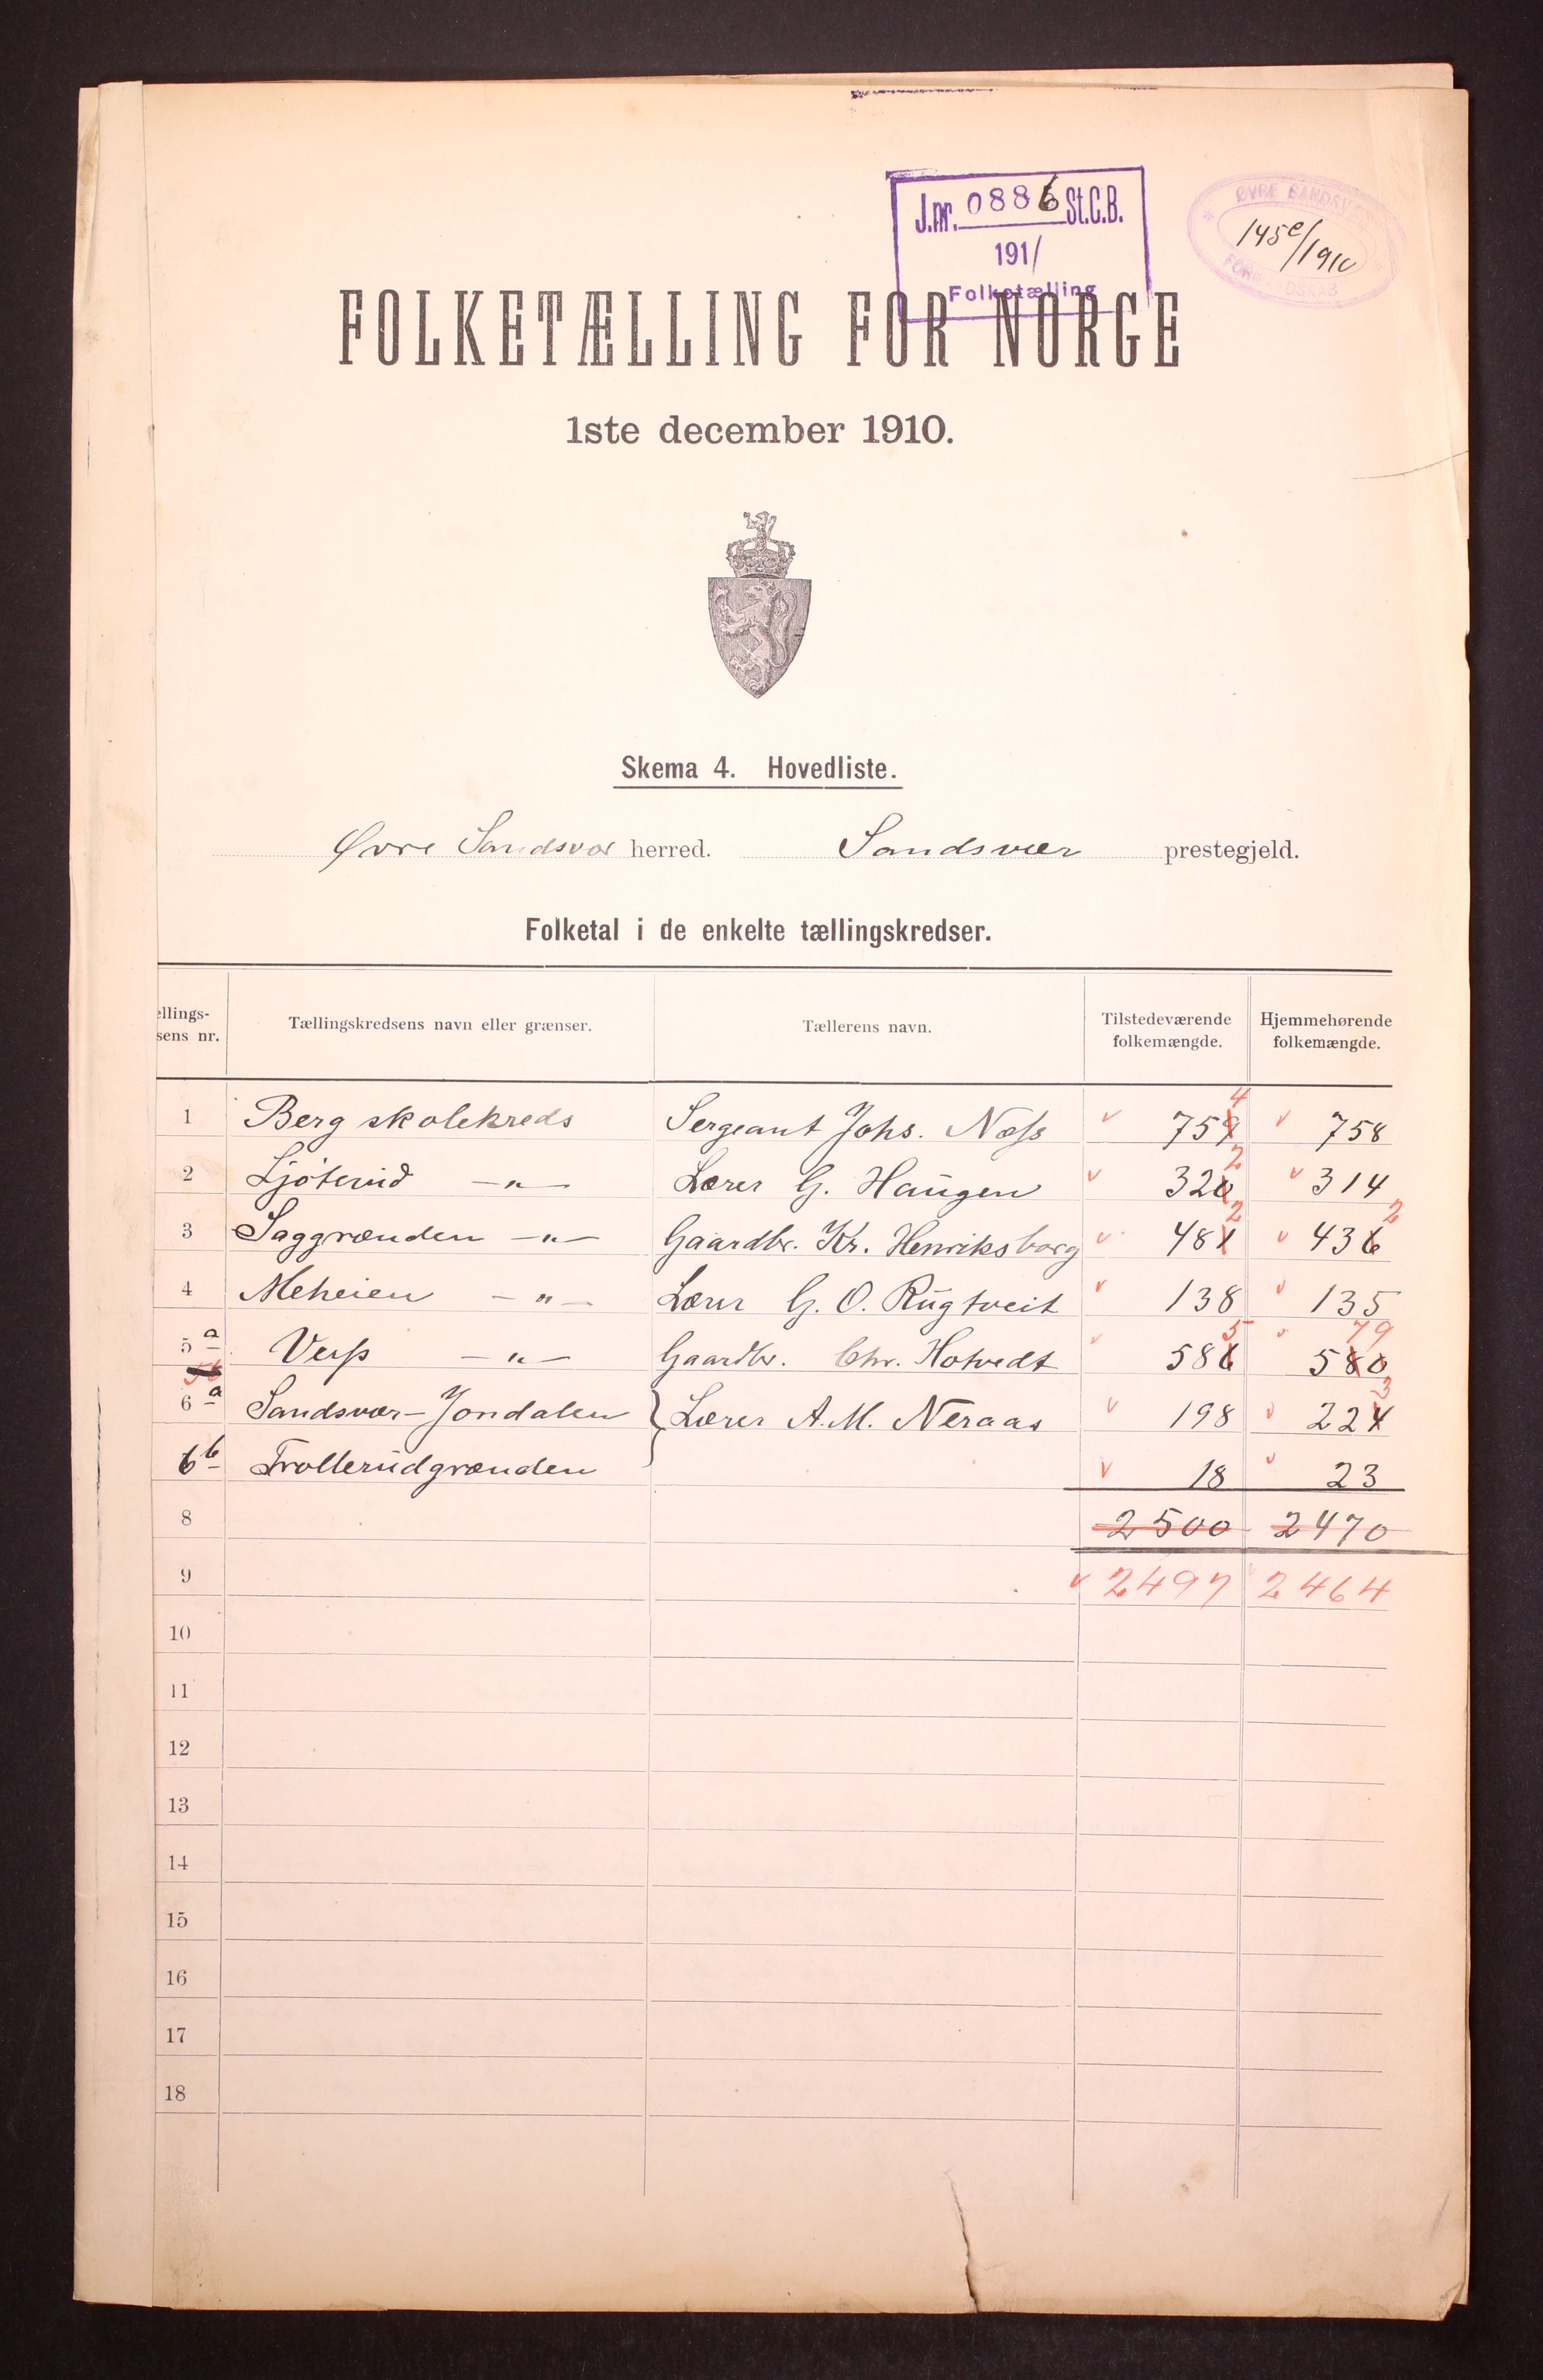 J.nr. 0886 St.C.B.
191/
Folketælling
ØVRE SANDSV
145e/1910
FORMANDSKAB
FOLKETÆLLING FOR NORGE
1ste december 1910.
Skema 4. Hovedliste.
Øvre Sandsvær herred. Sandsvær prestegjeld.
Folketal i de enkelte tællingskredser.
ellings-
sens nr.
Tællingskredsens navn eller grænser.
Tællerens navn.
Tilstedeværende
folkemængde.
Hjemmehørende
folkemængde.
1 Berg skolekreds Sergeant Johs. Næss 759 4 758
2 Ljøterud —"— Lærer G. Haugen 320 2 314
3 Saggrænden —"— Gaardbr. Kr. Henriksborg 481 2 436 2
4 Meheien —"— Lærer G. O. Rugtveit 138 135
5 a Vess —"— Gaardbr. Chr. Hotvedt 586 5 580 79
6 a Sandsvær-Jondalen Lærer A. M. Neraas 198 224 3
6 b Trollerudgrænden 18 23
8 2500 2470
9 2497 2464
10
11
12
13
14
15
16
17
18